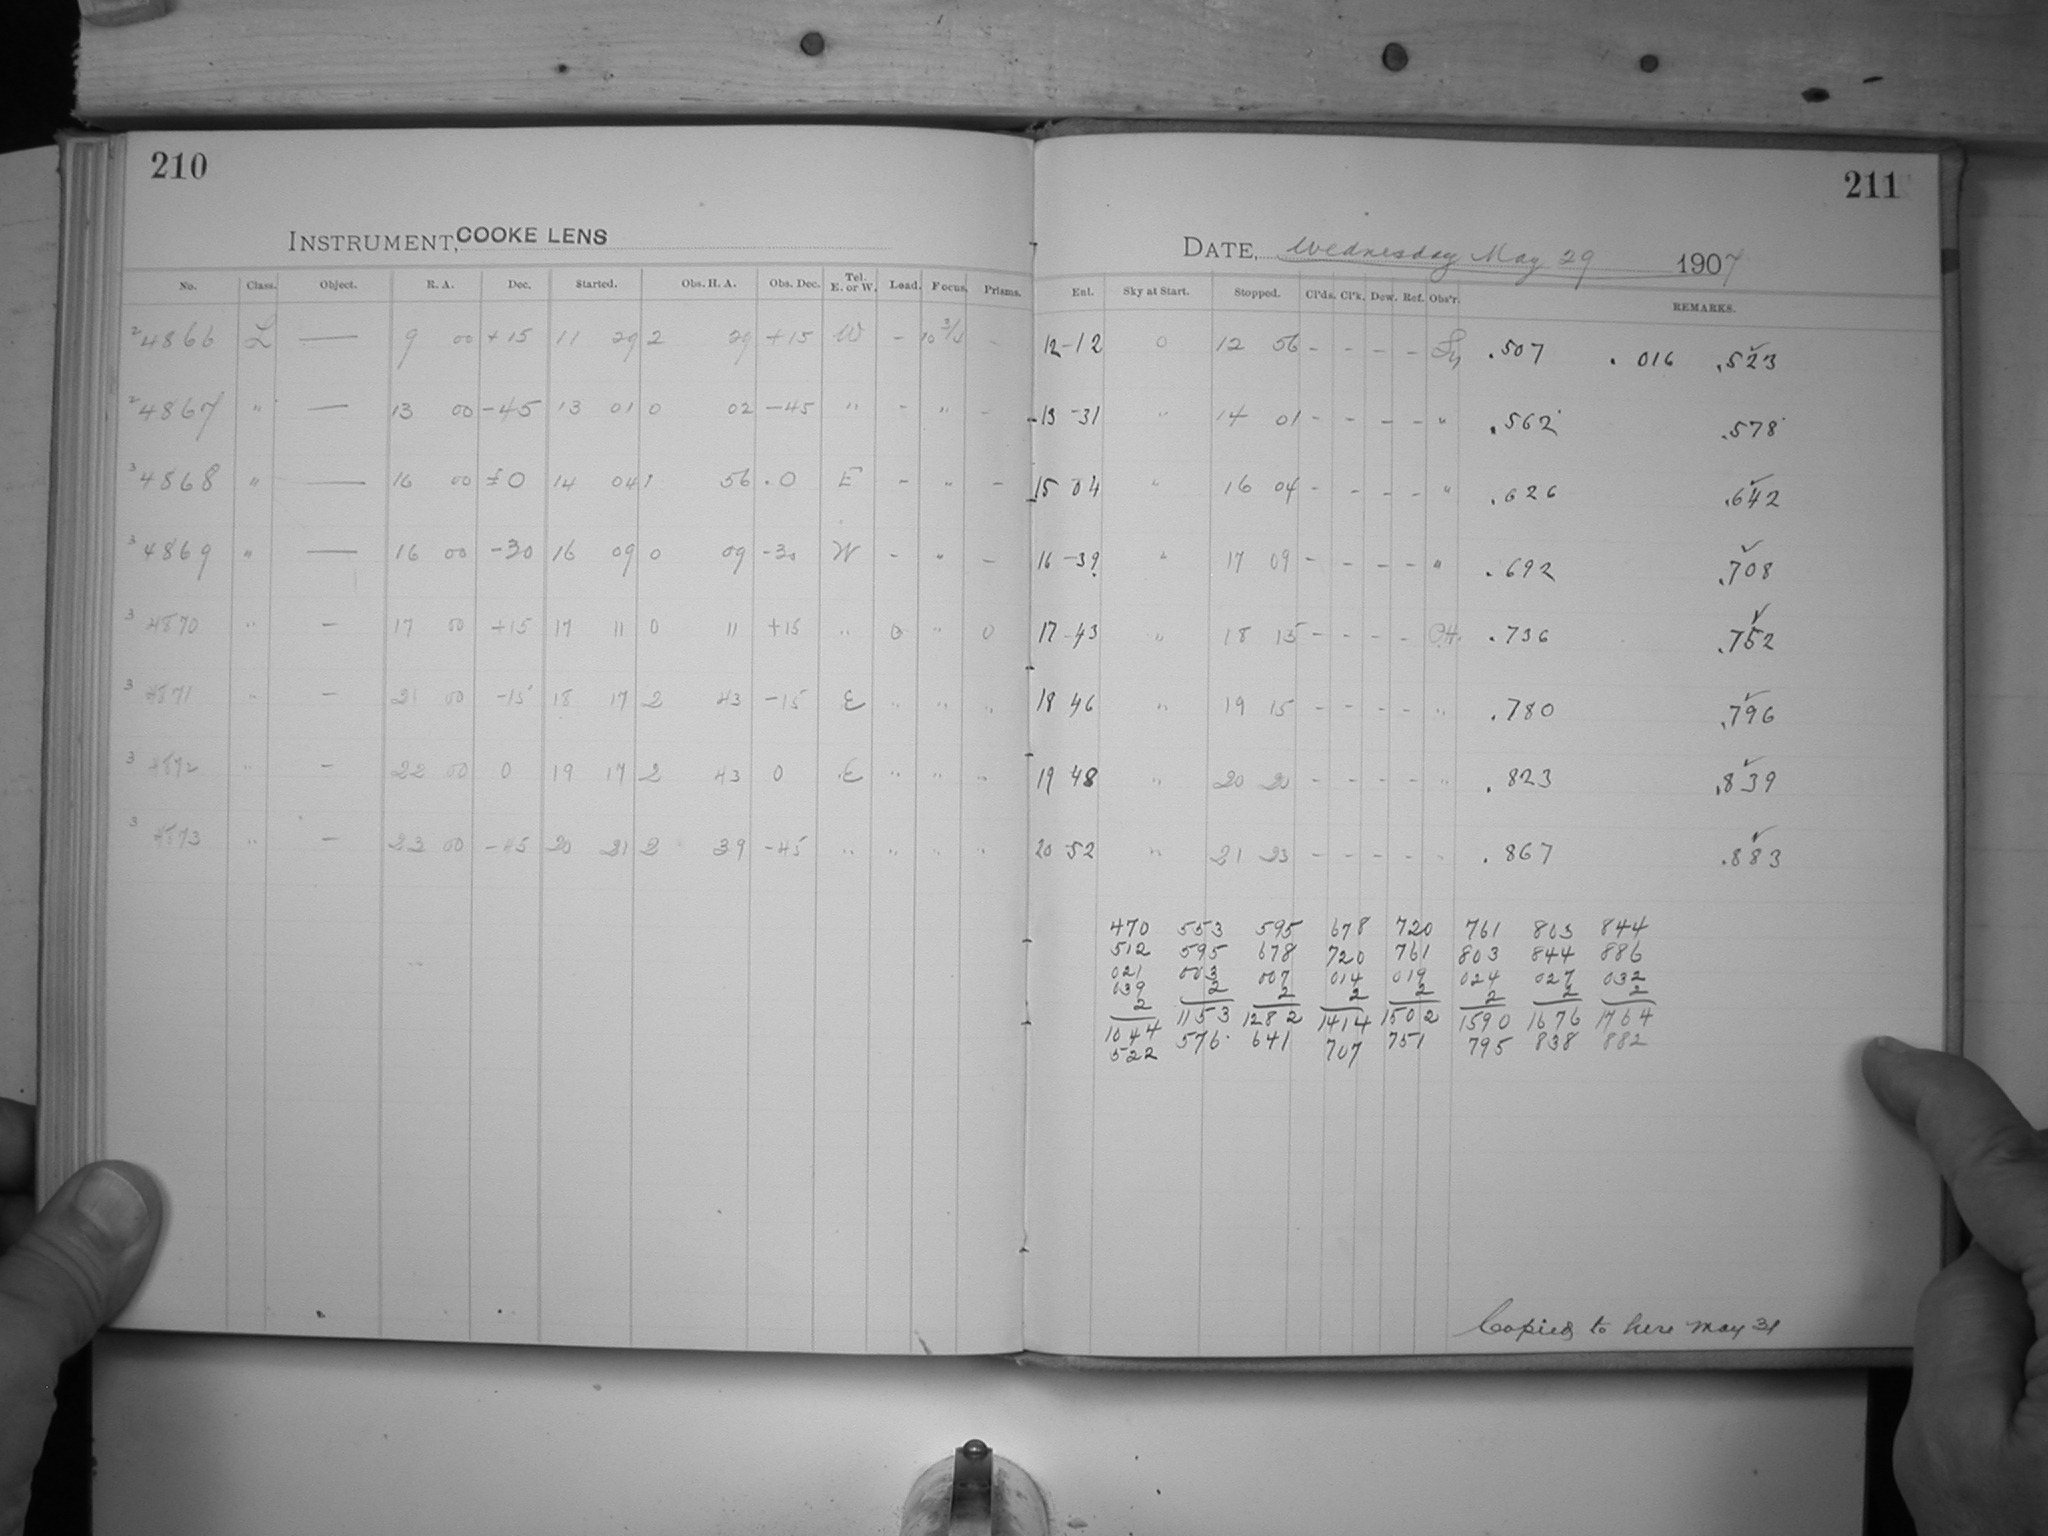 210
INSTRUMENT, COOKE LENS
No. Class. Object. R. A. Dec. Started. Obs. H. A. Obs. Dec. Tel. E. or W. Load. Focus. Prisms.
2 4866 L — 9 00 +15 11 29 2 29 +15 W - 10 3/4 -
2 4867 " — 13 00 -45 13 01 0 02 -45 " - " -
3 4868 " — 16 00 ±0 14 04 1 56 0 E - " -
3 4869 " — 16 00 -30 16 09 0 09 -30 W - " -
3 4870 " - 17 00 +15 17 11 0 11 +15 " 0 " 0
3 4871 " - 21 00 -15 18 17 2 43 -15 E " " "
3 4872 " - 22 00 0 19 17 2 43 0 E " " "
3 4873 " - 23 00 -45 20 21 2 39 -45 " " " "
211
DATE, Wednesday May 29 1907
Ent. Sky at Start. Stopped. Cl'ds. Cl'k. Dew. Ref. Obs'r. REMARKS.
12-12 0 12 56 - - - - .507 .016 .523
13-31 " 14 01 - - - - " .562 .578
15 04 " 16 04 - - - - " .626 .642
16-39 " 17 09 - - - - " .692 .708
17-43 " 18 15 - - - - .736 .752
18 46 " 19 15 - - - - " .780 .796
19 48 " 20 20 - - - - " .823 .839
20 52 " 21 23 - - - - " .867 .883
470 553 595 678 720 761 803 844
512 595 678 720 761 803 844 886
021 003 007 014 019 024 027 032
039 2 2 2 2 2 2 2
2 1153 1282 1414 1502 1590 1676 1764
1044 576 641 707 751 795 838 882
522
Copied to here May 31